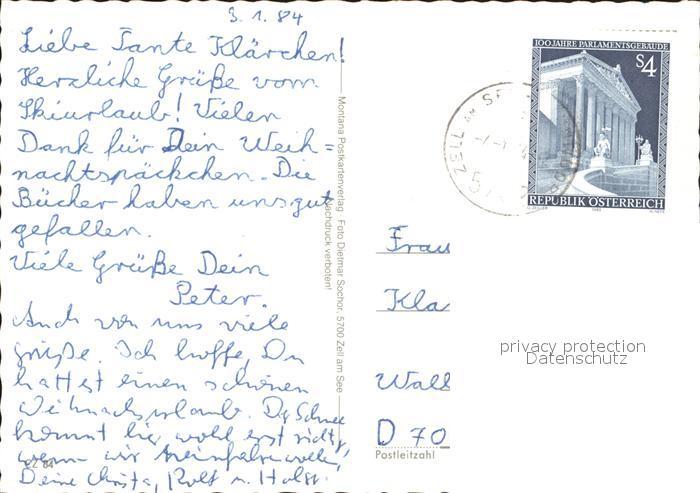 3.1.84
Liebe Tante Klärchen!
Herzliche Grüße vom
Skiurlaub! Vielen
Dank für Dein Weih=
nachtspäckchen. Die
Bücher haben uns gut
gefallen.
Viele Grüße Dein
Peter.
Auch von uns viele
Grüße. Ich hoffe, Du
hattest einen schönen
Weihnachtsurlaub. Der Schnee
kommt hier wohl erst richtig,
wenn wir heimfahren wollen,
Deine Christa, Rolf u. Holger.
Montana Postkartenverlag · Foto Dietmar Sochor, 5700 Zell am See
Nachdruck verboten!
100 JAHRE PARLAMENTSGEBÄUDE
S4
REPUBLIK ÖSTERREICH
ZELL AM SEE
Frau
Kla
Wall
D 70
Postleitzahl
privacy protection
Datenschutz